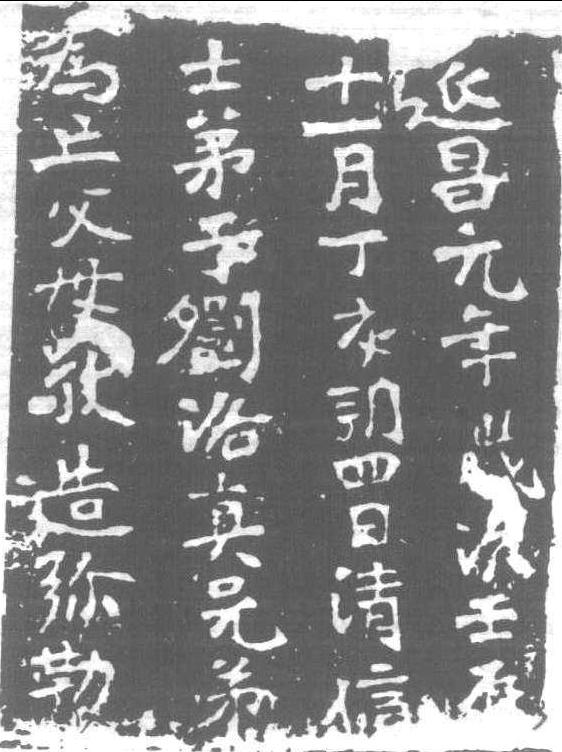 延昌元年歲次壬辰
十一月丁亥朔四日清信
士弟子劉洛真兄弟
為亡父母敬造弥勒